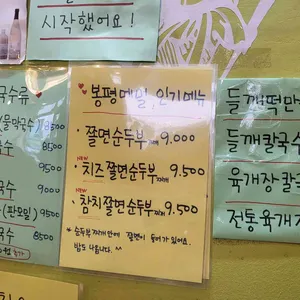 시작했어요!
국수류
(물막국수) 8500
국수 9500
국수 9000
(판모밀) 9500
국수 8500
봉평메밀, 인기메뉴
쫄면순두부찌개 9.000
NEW
치즈쫄면순두부찌개 9.500
NEW
참치쫄면순두부찌개 9.500
* 순두부찌개안에 쫄면이 들어가 있어요.
밥도 나옵니다. ^^
들깨떡만
들깨칼국수
육개장칼국
전통육개